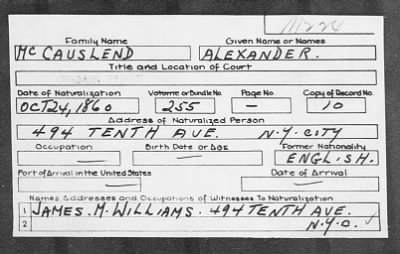 Family Name Given Name or Names
McCAUSLEND ALEXANDER.
Title and Location of Court
Date of Naturalization Volume or Bundle No. Page No. Copy of Record No.
OCT 24, 1860 255 — 10
Address of Naturalized Person
494 TENTH AVE. N.Y. CITY
Occupation Birth Date or Age Former Nationality
— — ENGLISH.
Port of Arrival in the United States Date of Arrival
— —
Names, Addresses and Occupations of Witnesses To Naturalization
1 JAMES. M. WILLIAMS. 494 TENTH AVE.
2 N.Y.C.